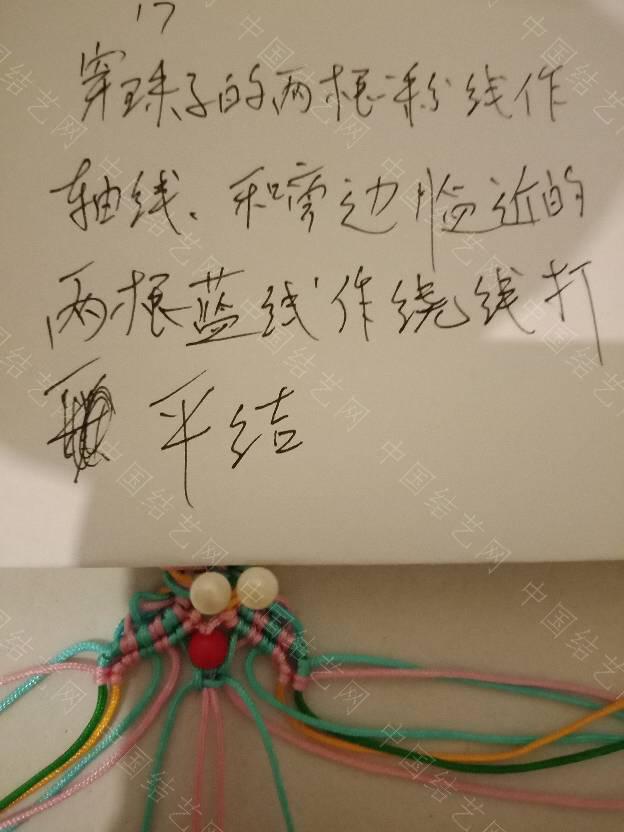 17
穿珠子的两根粉线作
轴线、和旁边临近的
两根蓝线作绕线打
平结
中国结艺网